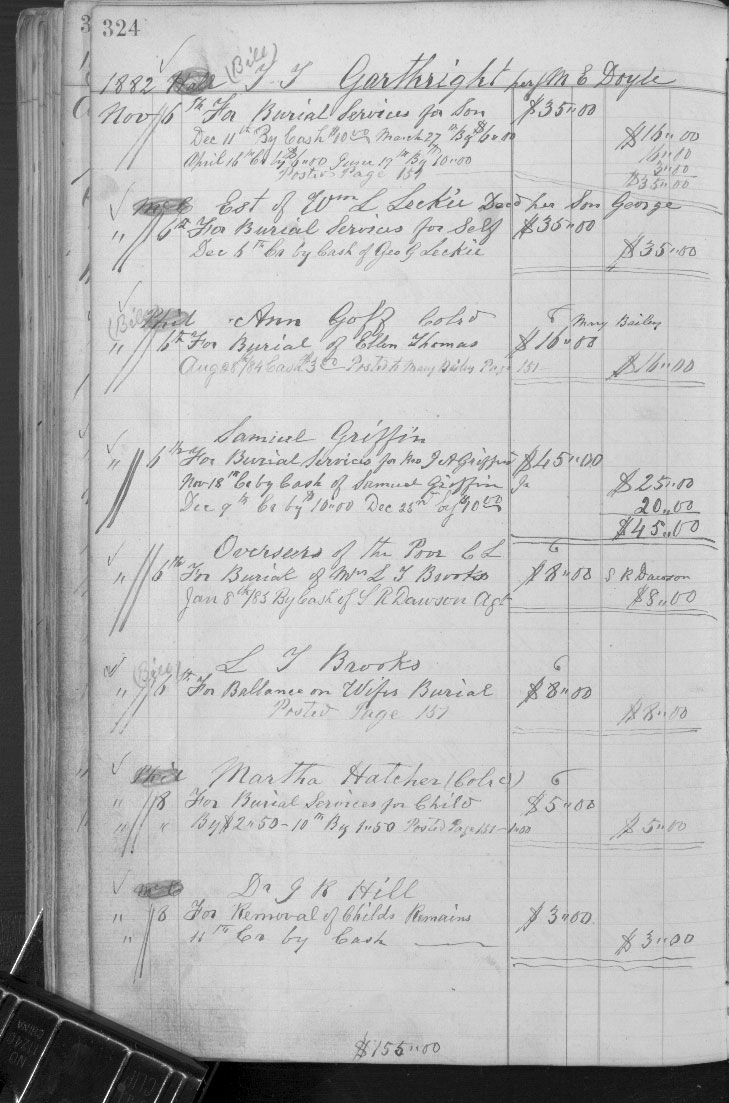 324
(Bill)
1882 Hall T T Garthright per M E Doyle
Nov 6th For Burial Services for Son $35"00
Dec 11th By Cash $10.00 March 27th By $6"00 $16"00
April 16th Cr by $6"00 June 17th By 10"00 16"00
Posted Page 151 3"00
$35"00
McC Est of Wm L Leckie Decd per Son George
" 6th For Burial Services for Self $35"00
Dec 6th Cr by Cash of Geo G Leckie $35"00
(Bill) Phil Ann Goff Colrd 6 Mary Bailey
" 6th For Burial of Ellen Thomas $16"00
Aug 28th/84 Cash 3.00 Posted to Mary Bailey Page 151 $16"00
Samuel Griffin
" 6th For Burial Services for Mrs J A Griffin $45"00
Nov 18th Cr by Cash of Samuel Griffin Jr $25"00
Dec 9th Cr by $10"00 Dec 23rd by $10.00 20"00
$45"00
Overseers of the Poor C L 6
" 6th For Burial of Mrs L T Brooks $8"00 S R Dawson
Jan 8th/83 By Cash of S R Dawson Agt $8"00
L T Brooks 6
(Bill)
" 6th For Ballance on Wifes Burial $8"00
Posted Page 151 $8"00
Phil Martha Hatcher (Colrd) 6
" 8 For Burial Services for Child $5"00
" " By $2"50 - 10th By 1"50 Posted Page 151 - 1"00 $5"00
McC Dr J R Hill
" 8 For Removal of Childs Remains $3"00
" 11th Cr by Cash $3"00
$155"00